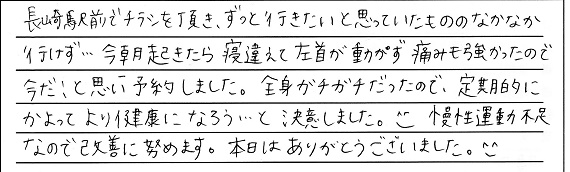 長崎駅前でチラシを頂き、ずっと行きたいと思っていたもののなかなか
行けず… 今朝起きたら 寝違えて左首が動かず 痛みも強かったので
今だ!と思い予約しました。全身ガチガチだったので、定期的に
かよって より健康になろう…と 決意しました。 慢性運動不足
なので改善に努めます。本日はありがとうございました。